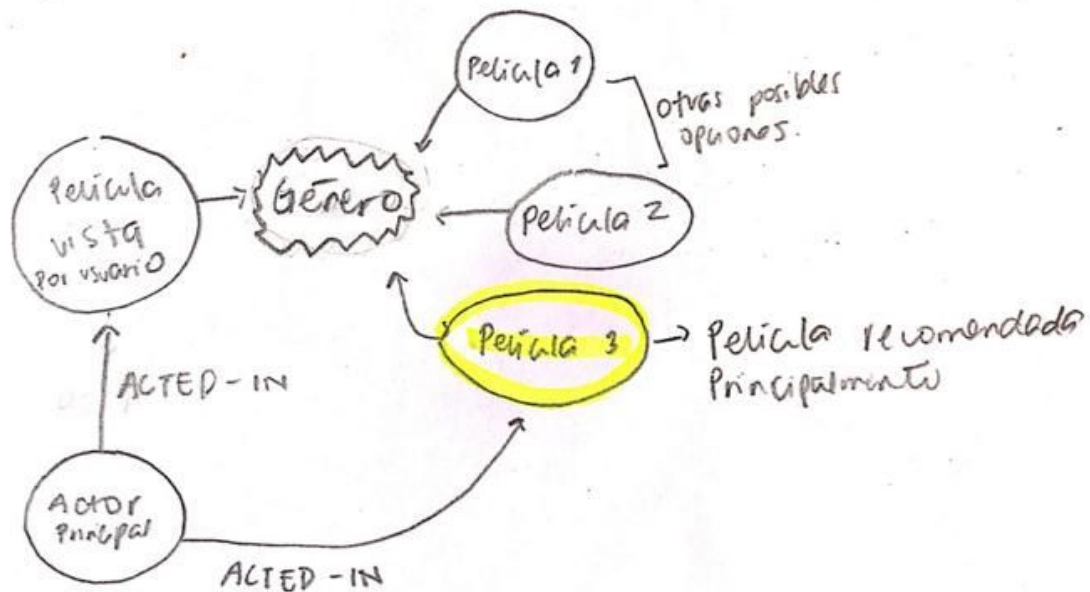 Película 1
otras posibles
opciones.
Película
vista
por usuario
Género
Película 2
Película 3
Película recomendada
Principalmente
ACTED-IN
Actor
Principal
ACTED-IN